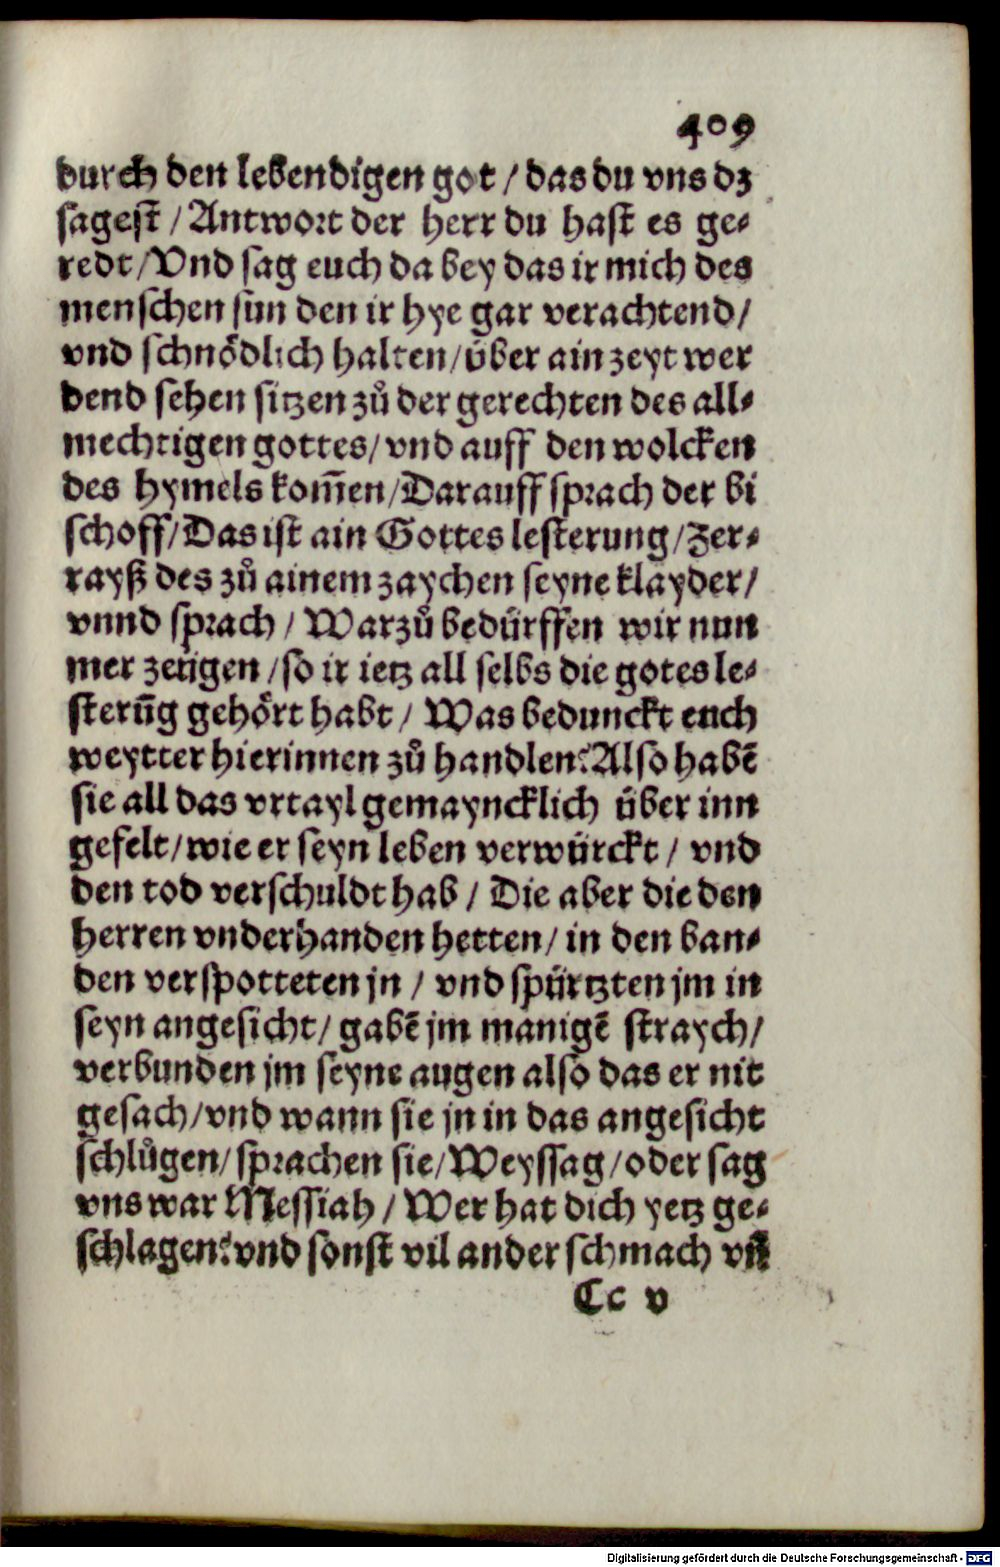 409
durch den lebendigen got / das du vns dz
sagest / Antwort der herr du hast es ge⸗
redt / Vnd sag euch da bey das ir mich des
menschen sun den ir hye gar verachtend /
vnd schnödlich halten / über ain zeyt wer
dend sehen sitzen zů der gerechten des all⸗
mechtigen gottes / vnd auff den wolcken
des hymels kom̄en / Darauff sprach der bi
schoff / Das ist ain Gottes lesterung / Zer⸗
rayß des zů ainem zaychen seyne klayder /
vnnd sprach / Warzů bedürffen wir nun
mer zeügen / so ir ietz all selbs die gotes le⸗
sterūg gehört habt / Was bedunckt euch
weytter hierinnen zů handlen? Also habē
sie all das vrtayl gemayncklich über inn
gefelt / wie er seyn leben verwürckt / vnd
den tod verschuldt hab / Die aber die den
herren vnderhanden hetten / in den ban⸗
den verspotteten jn / vnd spürtzten jm in
seyn angesicht / gabē jm manigē straych /
verbunden jm seyne augen also das er nit
gesach / vnd wann sie jn in das angesicht
schlůgen / sprachen sie / Weyssag / oder sag
vns war Messiah / Wer hat dich yetz ge⸗
schlagen? vnd sonst vil ander schmach vn̄
Cc v
Digitalisierung gefördert durch die Deutsche Forschungsgemeinschaft - DFG